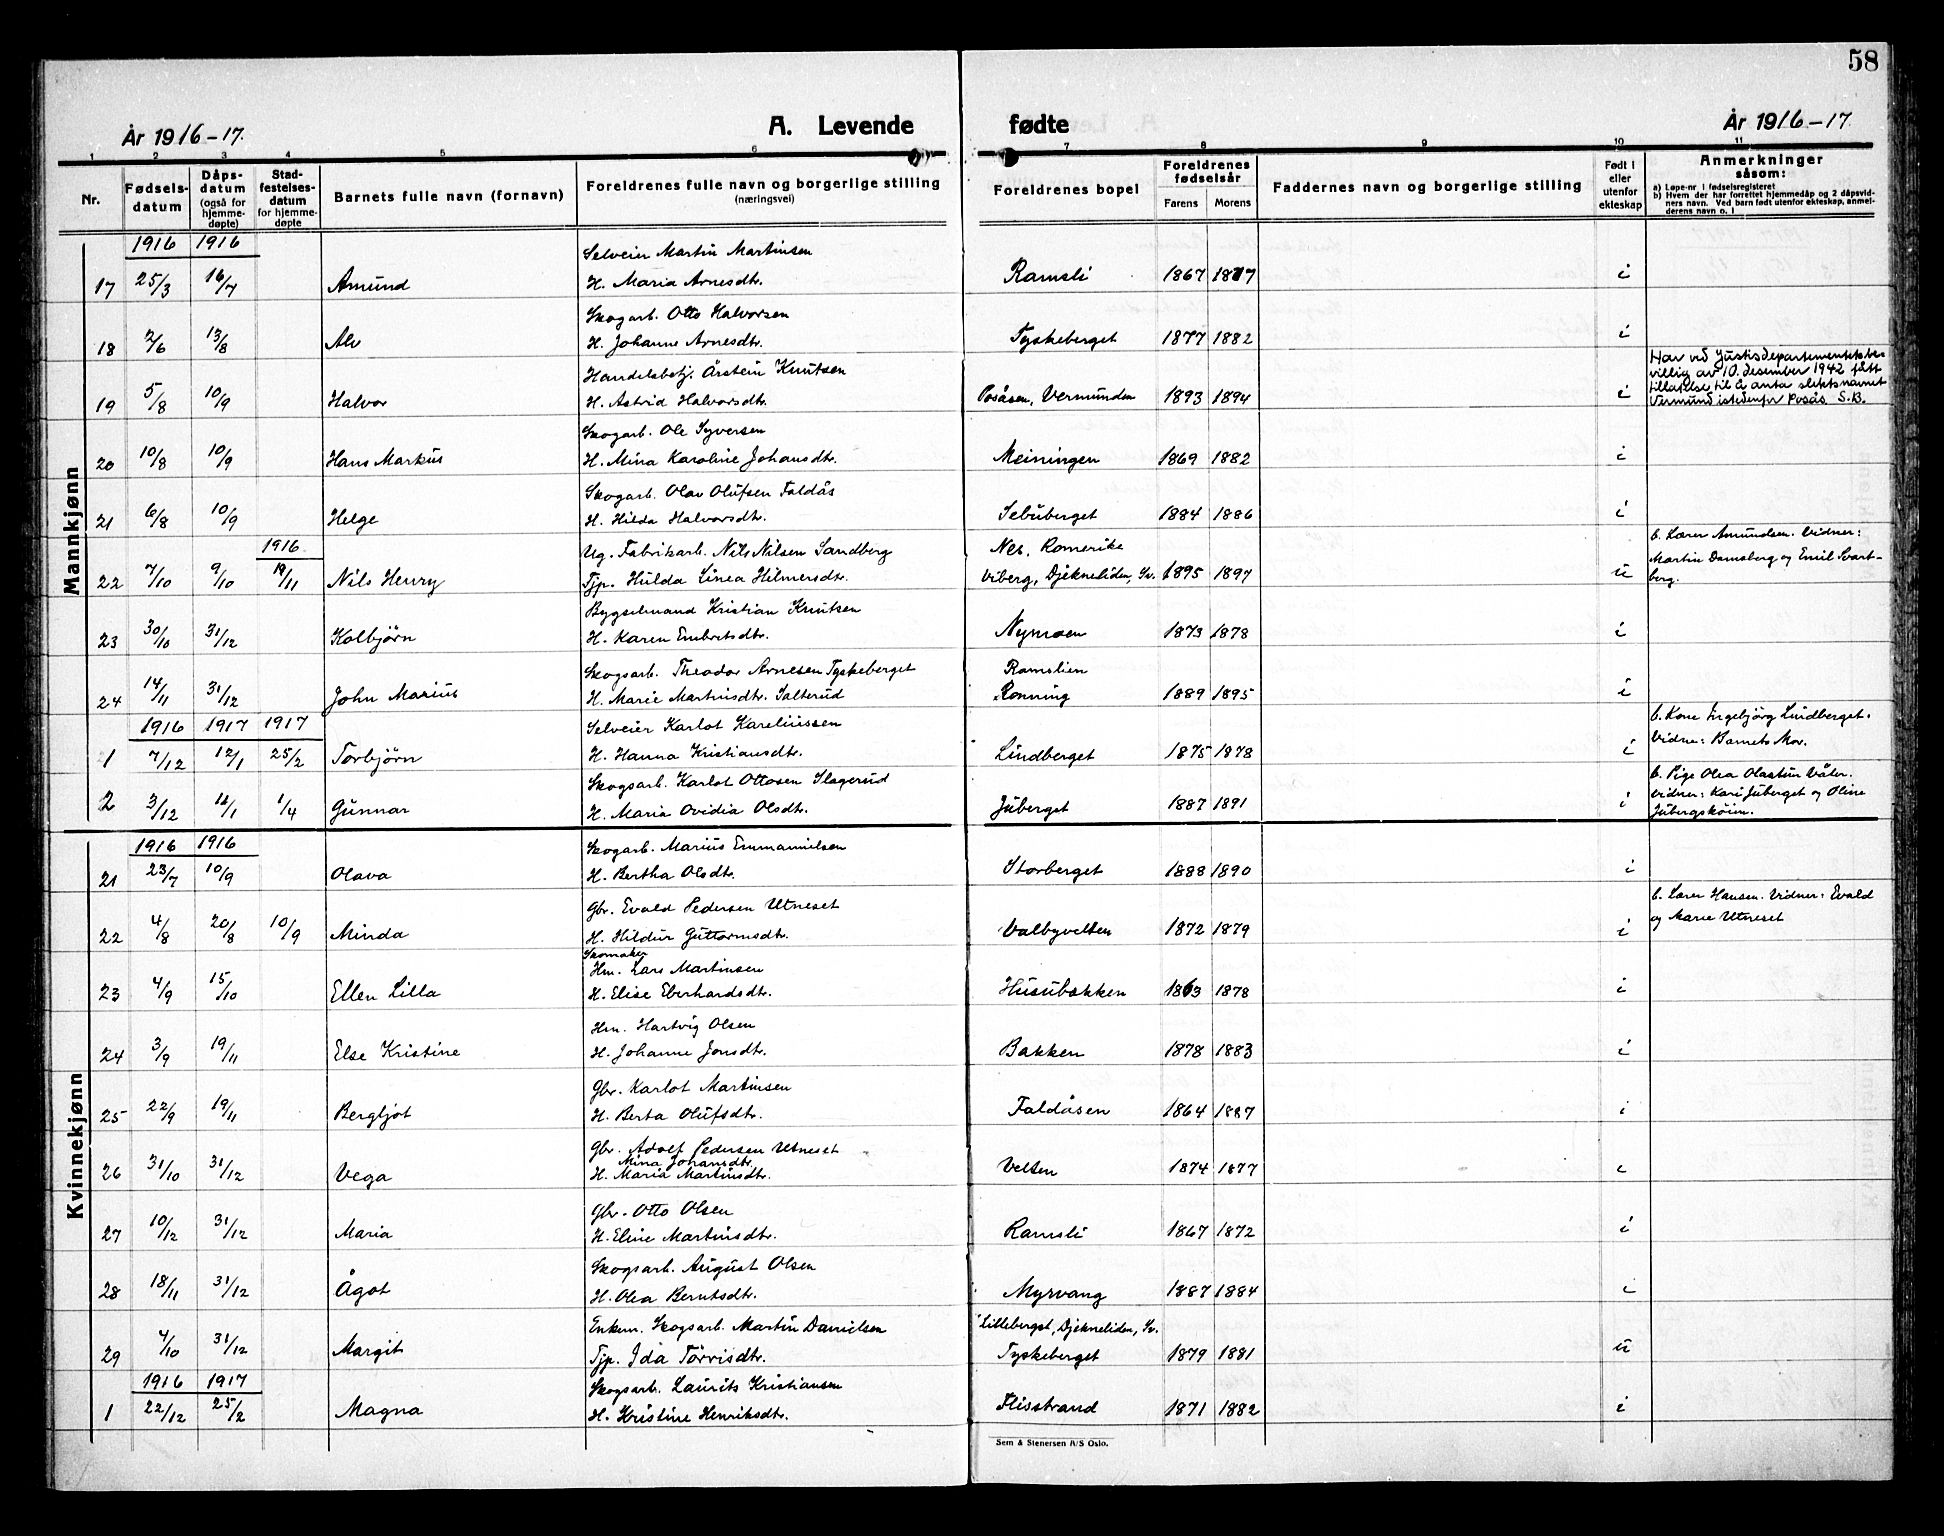 58
År 1916-17.
A. Levende
fødte
År 1916-17.
1 2 3 4 5 6 7 8 9 10 11
Nr.
Fødsels-
datum
Dåps-
datum
(også for
hjemme-
døpte)
Stad-
festelses-
datum
for hjemme-
døpte
Barnets fulle navn (fornavn)
Foreldrenes fulle navn og borgerlige stilling
(næringsvei)
Foreldrenes bopel
Foreldrenes
fødselsår
Farens
Morens
Faddernes navn og borgerlige stilling
Født i
eller
utenfor
ekteskap
Anmerkninger
såsom:
a) Løpe-nr i fødselsregisteret
b) Hvem der har forrettet hjemmedåp og 2 dåpsvid-
ners navn. Ved barn født utenfor ekteskap, anmel-
derens navn o. l
Mannkjønn
1916 1916
Selveier Martin Martinsen
17 25/3 16/7 Amund H. Maria Arnesdtr. Ramsli 1867 1877 i
Skogarb. Otto Halvorsen
18 2/6 13/8 Alv H. Johanne Arnesdtr. Tyskeberget 1877 1882 i
Handelsbetj. Årstein Knutsen
19 5/8 10/9 Halvor H. Astrid Halvorsdtr. Posåsen, Vermunden 1893 1894 i
Har ved Justisdepartementets be-
villig av 10. desember 1942 fått
tillatelse til å anta slektsnavnet
Vermund istedenfor Posås. S.B.
Skogarb. Ole Syversen
20 10/8 10/9 Hans Markus H. Mina Karoline Johansdtr. Meiningen 1869 1882 i
Skogarb. Olav Olufsen Faldås
21 6/8 10/9 Helge H. Hilda Halvorsdtr. Sebuberget 1884 1886 i
1916
Ug. Fabrikarb. Nils Nilsen Sandberg Nes, Romerike
22 7/10 9/10 19/11 Nils Henry Tjp. Hulda Linea Hilmersdtr. Viberg, Djekneliden, Sv. 1895 1897 u
b. Lærer Amundsen. Vidner:
Martin Damsberg og Emil Svart-
berg.
Bygselmand Kristian Knutsen
23 30/10 31/12 Kolbjörn H. Karen Embretsdtr. Nymoen 1873 1878 i
Skogsarb. Theodor Arnesen Tyskeberget Ramslien
24 14/11 31/12 John Marius H. Marie Martinsdtr. Salterud Rönning 1889 1895 i
1916 1917 1917
Selveier Karlot Kareliussen
1 7/12 12/1 25/2 Torbjörn H. Hanna Kristiansdtr. Lindberget 1875 1878 i
b. Kone Ingebjörg Lindberget.
Vidne: Barnets Mor.
Skogsarb. Karlot Ottosen Slagerud
2 3/12 12/1 1/4 Gunnar H. Maria Ovidia Olsdtr. Juberget 1887 1891 i
b. Pige Olea Olastun Våler.
Vidner: Kari Juberget og Oline
Jubergskóien.
Kvinnekjønn
1916 1916
Skogarb. Marius Emmanuelsen
21 23/7 10/9 Olava H. Bertha Olsdtr. Storberget 1888 1890 i
Gbr. Evald Pedersen Utneset
22 4/8 20/8 10/9 Minda H. Hildur Guttormsdtr. Valbyvelten 1872 1879 i
b. Lærer Hansen. Vidner: Evald
og Marie Utneset
Skomaker
Hm. Lars Martinsen
23 4/9 15/10 Ellen Lilla H. Elise Eberhardsdtr. Husubakken 1863 1878 i
Hm. Hartvig Olsen
24 3/9 19/11 Else Kristine H. Johanne Jonsdtr. Bakken 1878 1883 i
Gbr. Karlot Martinsen
25 22/9 19/11 Bergljot H. Berta Olufsdtr. Faldåsen 1864 1887 i
Gbr. Adolf Pedersen Utneset
Mina Johansdtr.
26 31/10 31/12 Vega H. Maria Martinsdtr. Velten 1874 1877 i
Gbr. Otto Olsen
27 10/12 31/12 Maria H. Eline Martinsdtr. Ramsli 1867 1872 i
Skogsarb. August Olsen
28 18/11 31/12 Ågot H. Olea Berntsdtr. Myrvang 1887 1884 i
Enkem. Skogsarb. Martin Danielsen Lilleberget, Djekneliden, Sv.
29 4/10 31/12 Margit Tjp. Ida Törrisdtr. Tyskeberget 1879 1881 u
1916 1917
Skogsarb. Laurits Kristiansen
1 22/12 25/2 Magna H. Kristine Henriksdtr. Flisstrand 1871 1882 i
Sem & Stenersen A/S Oslo.